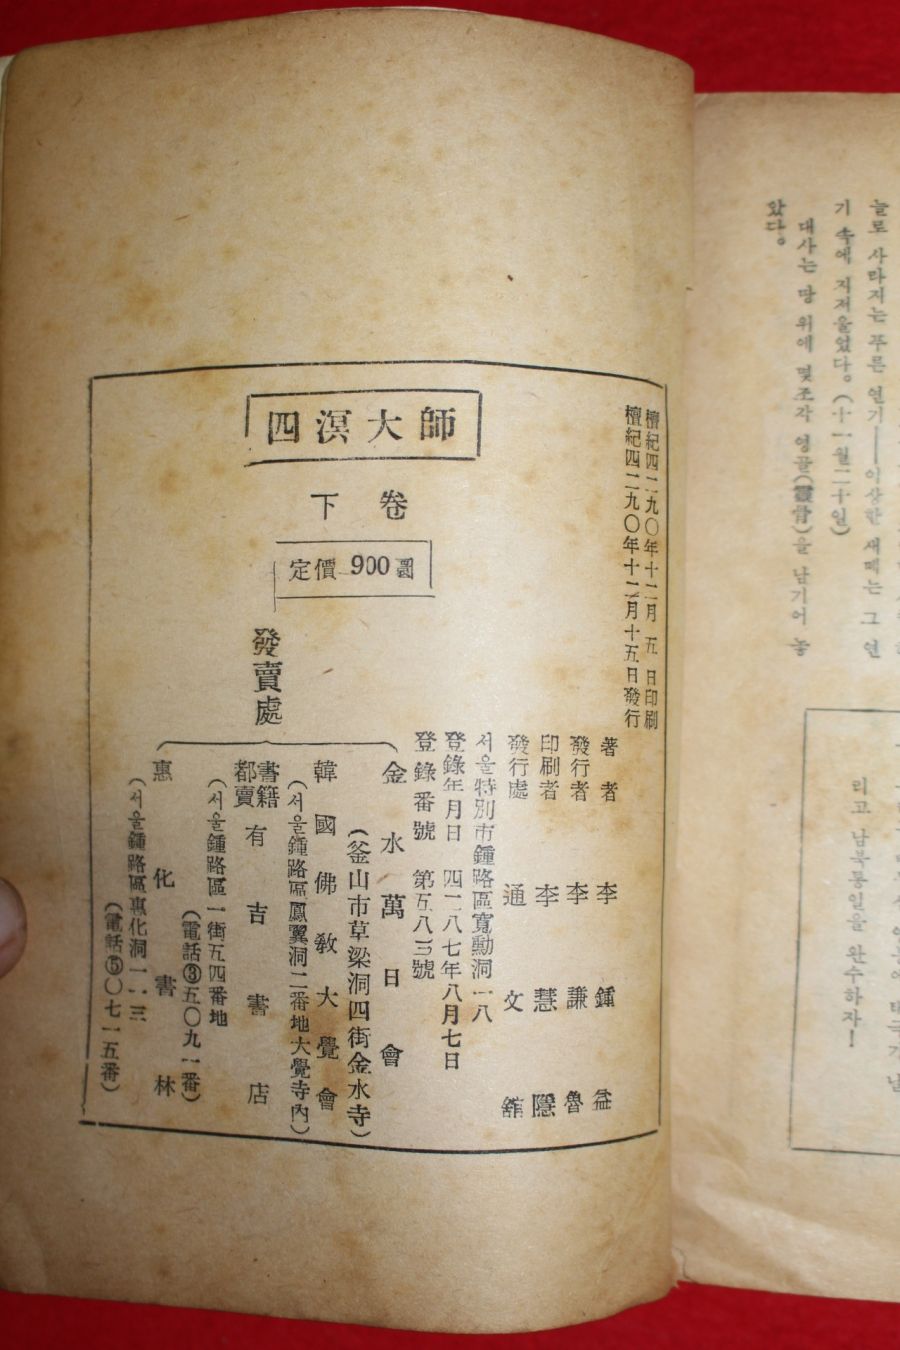 늘로 사라지는 푸른 연기——이상한 새떼는 그 연
기 속에 지저울었다。(十一月二十日)
대사는 땅 위에 몇조각 영골(靈骨)을 남기어 놓
았다。
리고 남북통일을 완수하자!
四溟大師
下卷
定價 900圜
檀紀四二九〇年十二月 五 日印刷
檀紀四二九〇年十二月十五日發行
著者 李鍾益
發行者 李謙魯
印刷者 李慧隱
發行處 通文館
서울特別市鍾路區寬勳洞一八
登錄年月日 四二八七年八月七日
登錄番號 第五八三號
發賣處
金水萬日會
(釜山市草梁洞四街金水寺)
韓國佛敎大覺會
(서울鍾路區鳳翼洞二番地大覺寺內)
書籍都賣 有吉書店
(서울鍾路區一街五四番地
(電話③五〇九一番)
惠化書林
(서울鍾路區惠化洞一一三
(電話⑤〇七一五番)